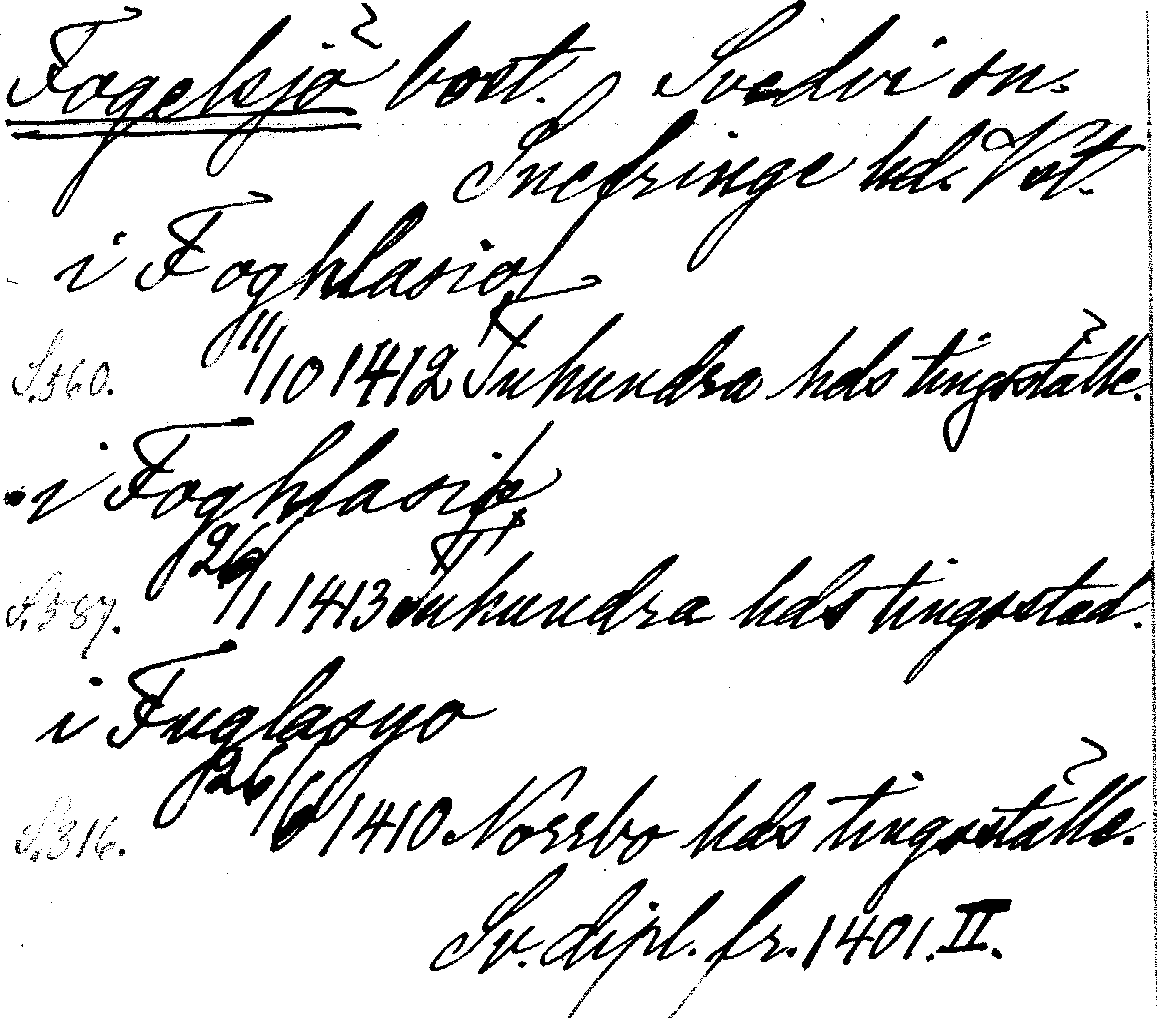 Fogelsjö bost. Svedvi sn.
Snefringe hd. Vst.
i Foghlasiø
S. 560. 11/10 1412 Tuhundra hds tingställe.
i Foghlasiø
S. 587. 26/1 1413 Tuhundra hds tingsstad.
i Fuglasyo
S. 316. 26/6 1410 Norrbo hds tingsställe.
Sv. dipl. fr. 1401. II.